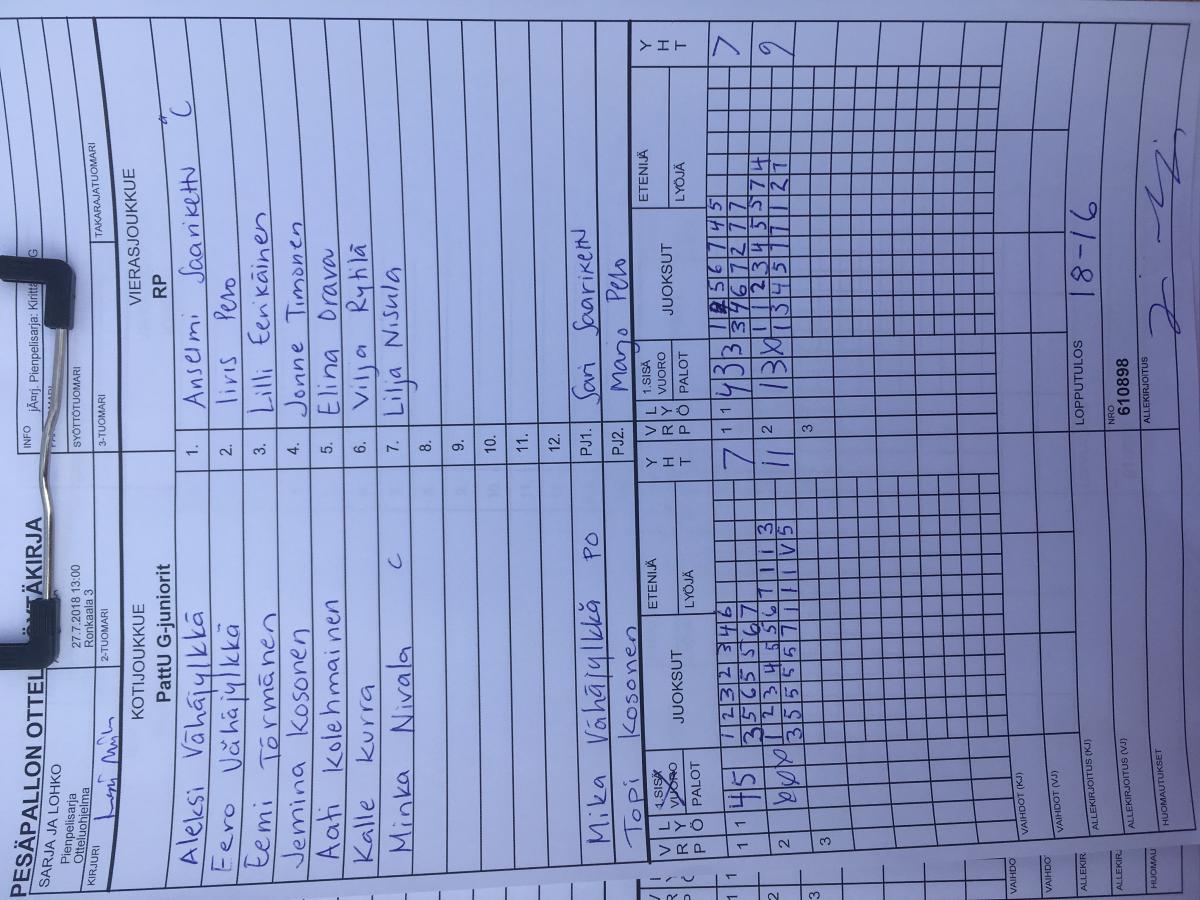 PESÄPALLON OTTEL
YTÄKIRJA
SARJA JA LOHKO
Pienpelisarja
Otteluohjelma
KIRJURI
27.7.2018 13:00
Ronkaala 3
2-TUOMARI
INFO
Pienpelisarja:
SYÖTTÖTUOMARI
3-TUOMARI
TAKARAJATUOMARI
KOTIJOUKKUE
PattU G-juniorit
VIERASJOUKKUE
RP
Aleksi Vähäjylkkä 1. Anselmi Saarikettu C
Eero Vähäjylkkä 2. Iiris Pelto
Eemi Törmänen 3. Lilli Eerikäinen
Jemina Kosonen 4. Jonne Timonen
Aati Kolehmainen 5. Elina Orava
Kalle Kurra 6. Vilja Rytilä
Minka Nivala C 7. Lilja Nisula
8.
9.
10.
11.
12.
Mika Vähäjylkkä PO PJ1. Sari Saarikettu
Topi Kosonen PJ2.
V R P L Y Ö 1.SISÄ VUORO PALOT JUOKSUT ETENIJÄ LYÖJÄ Y H T V R P L Y Ö 1.SISÄ VUORO PALOT JUOKSUT ETENIJÄ LYÖJÄ Y H T
1 1 4 5 1 2 3 2 3 4 6 7 1 1 4 3 3 5 6 7 4 5 7
3 5 6 5 5 5 6 7 3 3 4 6 7 2 7 7
2 1 2 3 4 5 5 6 7 1 1 3 11 2 1 3 1 1 2 3 4 5 5 7 4 9
3 5 5 5 5 7 1 1 1 V 5 1 3 4 5 7 7 1 2 7
3 3
VAIHDOT (KJ)
VAIHDOT (VJ)
LOPPUTULOS 18-16
ALLEKIRJOITUS (KJ)
NRO
610898
ALLEKIRJOITUS (VJ)
ALLEKIRJOITUS
HUOMAUTUKSET